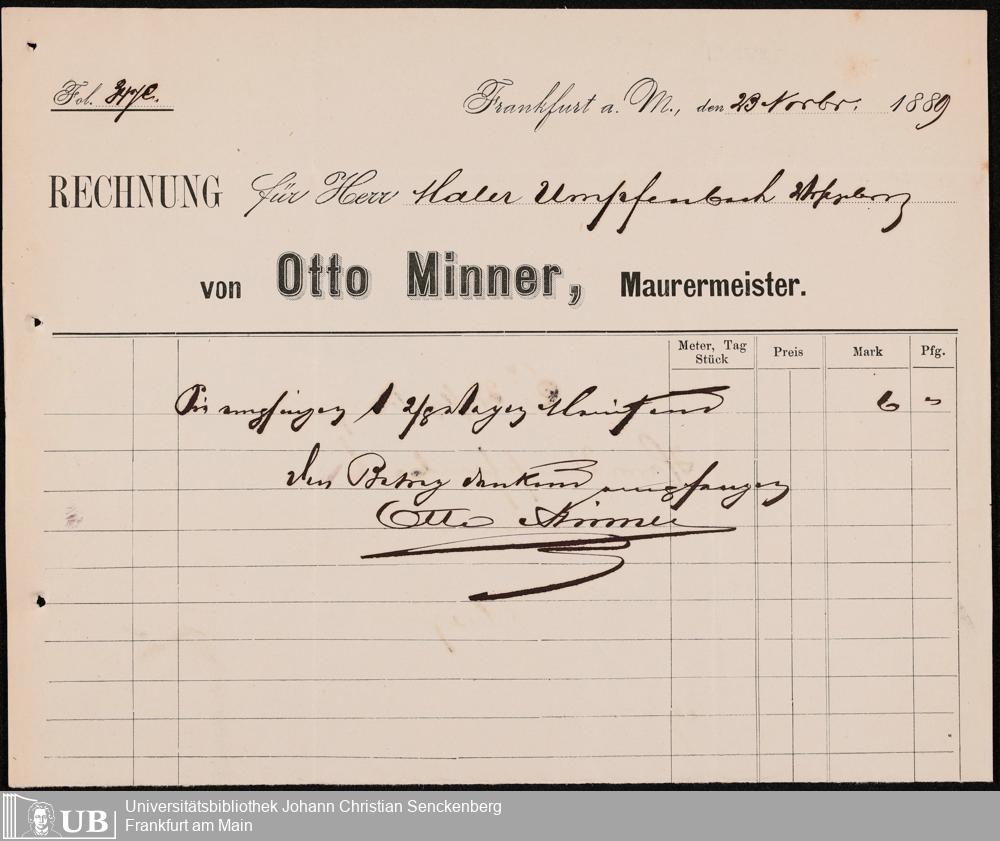 Fol.
Frankfurt a. M., den 23 Novbr. 1889
RECHNUNG für Herr Maler Umpfenbach
von Otto Minner, Maurermeister.
Meter, Tag Stück Preis Mark Pfg.
6 "
den Betrag dankend empfangen
Otto Minner
Universitätsbibliothek Johann Christian Senckenberg
UB Frankfurt am Main